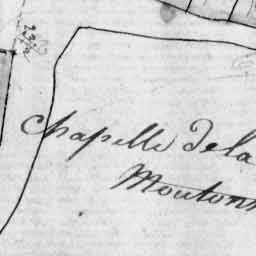 Chapelle de la
Mouton